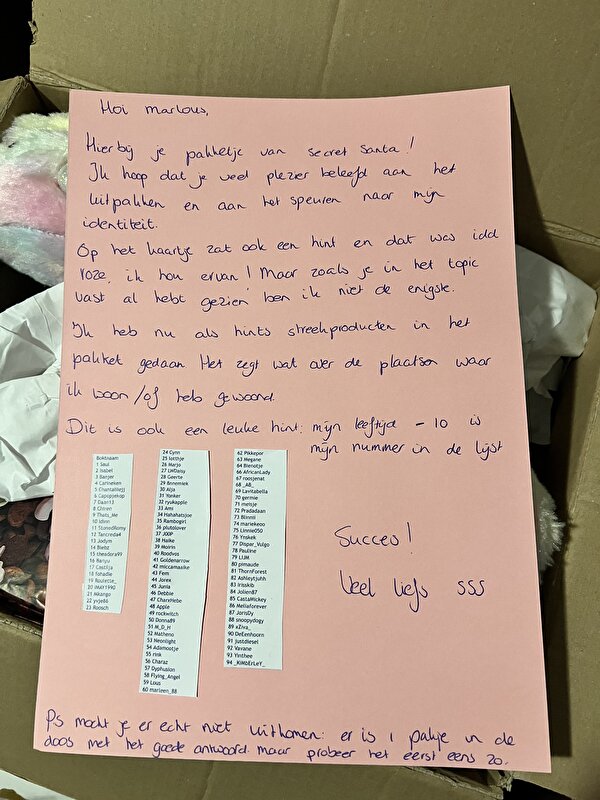 Hoi marlous,
Hierbij je pakketje van secret santa!
Ik hoop dat je veel plezier beleefd aan het
uitpakken en aan het speuren naar mijn
identiteit.
Op het kaartje zat ook een hint en dat was idd
roze, ik hou ervan! Maar zoals je in het topic
vast al hebt gezien ben ik niet de enigste.
Ik heb nu als hints streekproducten in het
pakket gedaan. Het zegt wat over de plaatsen waar
ik woon/of heb gewoond.
Dit is ook een leuke hint: mijn leeftijd - 10 is
mijn nummer in de lijst
Boktnaam
1 Saul
2 Isabel
3 Banjer
4 Carineken
5 Chantalllejj
6 Capopjekop
7 Daan13
8 Chiren
9 Thats_Me
10 Idinn
11 StonedRomy
12 Tancreda4
13 Jodym
14 Blebz
15 theadora99
16 Bariyu
17 Castilja
18 fohadie
19 Roulette_
20 IMAY1990
21 Nkango
22 yvje86
23 Roosch
24 Cynn
25 lotthje
26 Marjo
27 LMDaisy
28 Geerte
29 Annemiek
30 Alja
31 Yonker
32 ryukapple
33 Ami
34 Hahahatsjoe
35 Rambogirl
36 plutolover
37 JOOP
38 Haike
39 Moirin
40 Roodvos
41 Goldenarrow
42 miccamaaike
43 Fem
44 Jorex
45 Junia
46 Debbie
47 CharxHebe
48 Apple
49 rockwitch
50 Donna89
51 M_D_H
52 Matheno
53 Neonlight
54 Adamootje
55 rink
56 Charaz
57 Dyphusion
58 Flying_Angel
59 Lous
60 marleen_88
62 Pikkepor
63 Megane
64 Bienotje
66 AfricanLady
67 roosjenat
68 _AB_
69 Lavitabella
70 germie
71 meisje
72 Pradadaan
73 Blinnii
74 mariekeoo
75 Linnie050
76 Ynskek
77 Dispar_Vulgo
78 Pauline
79 LiJM
80 pimaude
81 ThornForest
82 Ashleytjuhh
83 Irisskib
84 Jolien87
85 CastaMickey
86 Meliaforever
87 JorisDy
88 snoopydogy
89 xZiva_
90 DeEenhoorn
91 justdiesel
92 Vavane
93 Yinthee
94 _KiMbErLeY_
Succes!
Veel liefs SSS
Ps mocht je er echt niet uitkomen: er is 1 pakje in de
doos met het goede antwoord. maar probeer het eerst eens zo.